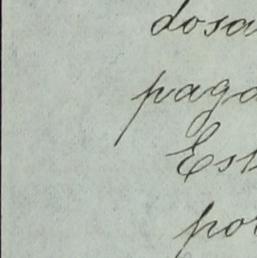 dosa
paga
Est
por